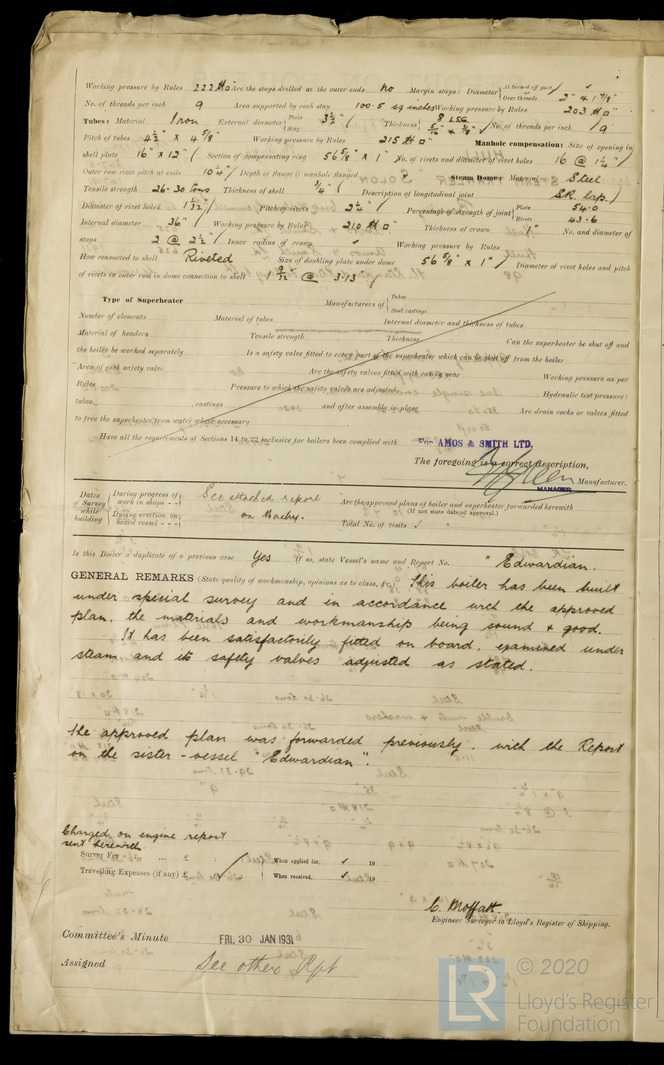 Working pressure by Rules 222 #□ Are the stays drilled at the outer ends no Margin stays: Diameter { At turned off part / Over threads 2" & 1 7/8"
No. of threads per inch 9 Area supported by each stay 100.5 sq inches Working pressure by Rules 203 #□
Tubes: Material Iron External diameter { Plain Stay 3½" Thickness { 8 LSG. 5/16" & 3/8" No. of threads per inch 9
Pitch of tubes 4½" x 4 5/8" Working pressure by Rules 215 #□ Manhole compensation: Size of opening in
shell plate 16" x 12" Section of compensating ring 56 5/8" x 1" No. of rivets and diameter of rivet holes 16 @ 1¼"
Outer row rivet pitch at ends 10¼" Depth of flange if manhole flanged Steam Dome: Material Steel
Tensile strength 26-30 tons Thickness of shell 3/4" Description of longitudinal joint SR. lap.
Diameter of rivet holes 1 1/32" Pitch of rivets 2¼" Percentage of strength of joint { Plate 54.0 Rivets 43.6
Internal diameter 36" Working pressure by Rules 210 #□ Thickness of crown 1" No. and diameter of
stays 2 @ 2½" Inner radius of crown ✓ Working pressure by Rules
How connected to shell Riveted Size of doubling plate under dome 56 5/8" x 1" Diameter of rivet holes and pitch
of rivets in outer row in dome connection to shell 1 9/32" @ 3.13"
Type of Superheater Manufacturers of { Tubes Steel castings
Number of elements Material of tubes Internal diameter and thickness of tubes
Material of headers Tensile strength Thickness Can the superheater be shut off and
the boiler be worked separately Is a safety valve fitted to every part of the superheater which can be shut off from the boiler
Area of each safety valve Are the safety valves fitted with easing gear Working pressure as per
Rules Pressure to which the safety valves are adjusted Hydraulic test pressure:
tubes, castings and after assembly in place Are drain cocks or valves fitted
to free the superheater from water where necessary
Have all the requirements of Sections 14 to 22 inclusive for boilers been complied with For AMOS & SMITH LTD.
The foregoing is a correct description,
Manufacturer.
MANAGER
Dates of Survey while building { During progress of work in shops - - } See attached report Are the approved plans of boiler and superheater forwarded herewith
(If not state date of approval.)
{ During erection on board vessel - - } on Machy. Total No. of visits
Is this Boiler a duplicate of a previous case Yes If so, state Vessel's name and Report No. "Edwardian.
GENERAL REMARKS (State quality of workmanship, opinions as to class, &c.) This boiler has been built
under special survey and in accordance with the approved
plan, the materials and workmanship being sound & good.
It has been satisfactorily fitted on board, examined under
steam and its safety valves adjusted as stated.
The approved plan was forwarded previously, with the Report
on the sister-vessel "Edwardian".
Charged on engine report
sent herewith.
Survey Fee ... ... £ : : When applied for, ✓ 19
Travelling Expenses (if any) £ : : When received, ✓ 19
C. Moffatt.
Engineer Surveyor to Lloyd's Register of Shipping.
Committee's Minute FRI. 30 JAN 1931
Assigned See other Rpt
© 2020
LR Lloyd's Register
Foundation